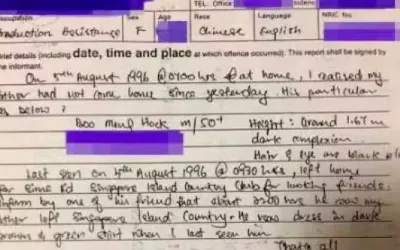 TEL: Office:
Occupation Sex Age Race Language NRIC No
Production Assistance F Chinese English
Brief details (including date, time and place at which offence occurred). This report shall be signed by
the informant.
On 5th August 1996 @ 0700 hrs @ at home, I realised my
father had not come home since yesterday. His particular
as below:
Boo Meng Hock m/50+ Height: Around 1.67m
dark complexion
Hair & eye are black
Last seen on 4th August 1996 @ 0930 hrs, left home
for Sime Rd Singapore Island Country Club for meeting friends.
Inform by one of his friend that about 2200 hrs he saw my
father left Singapore Island Country. He was dress in dark
& green shirt when I last seen him
That's all